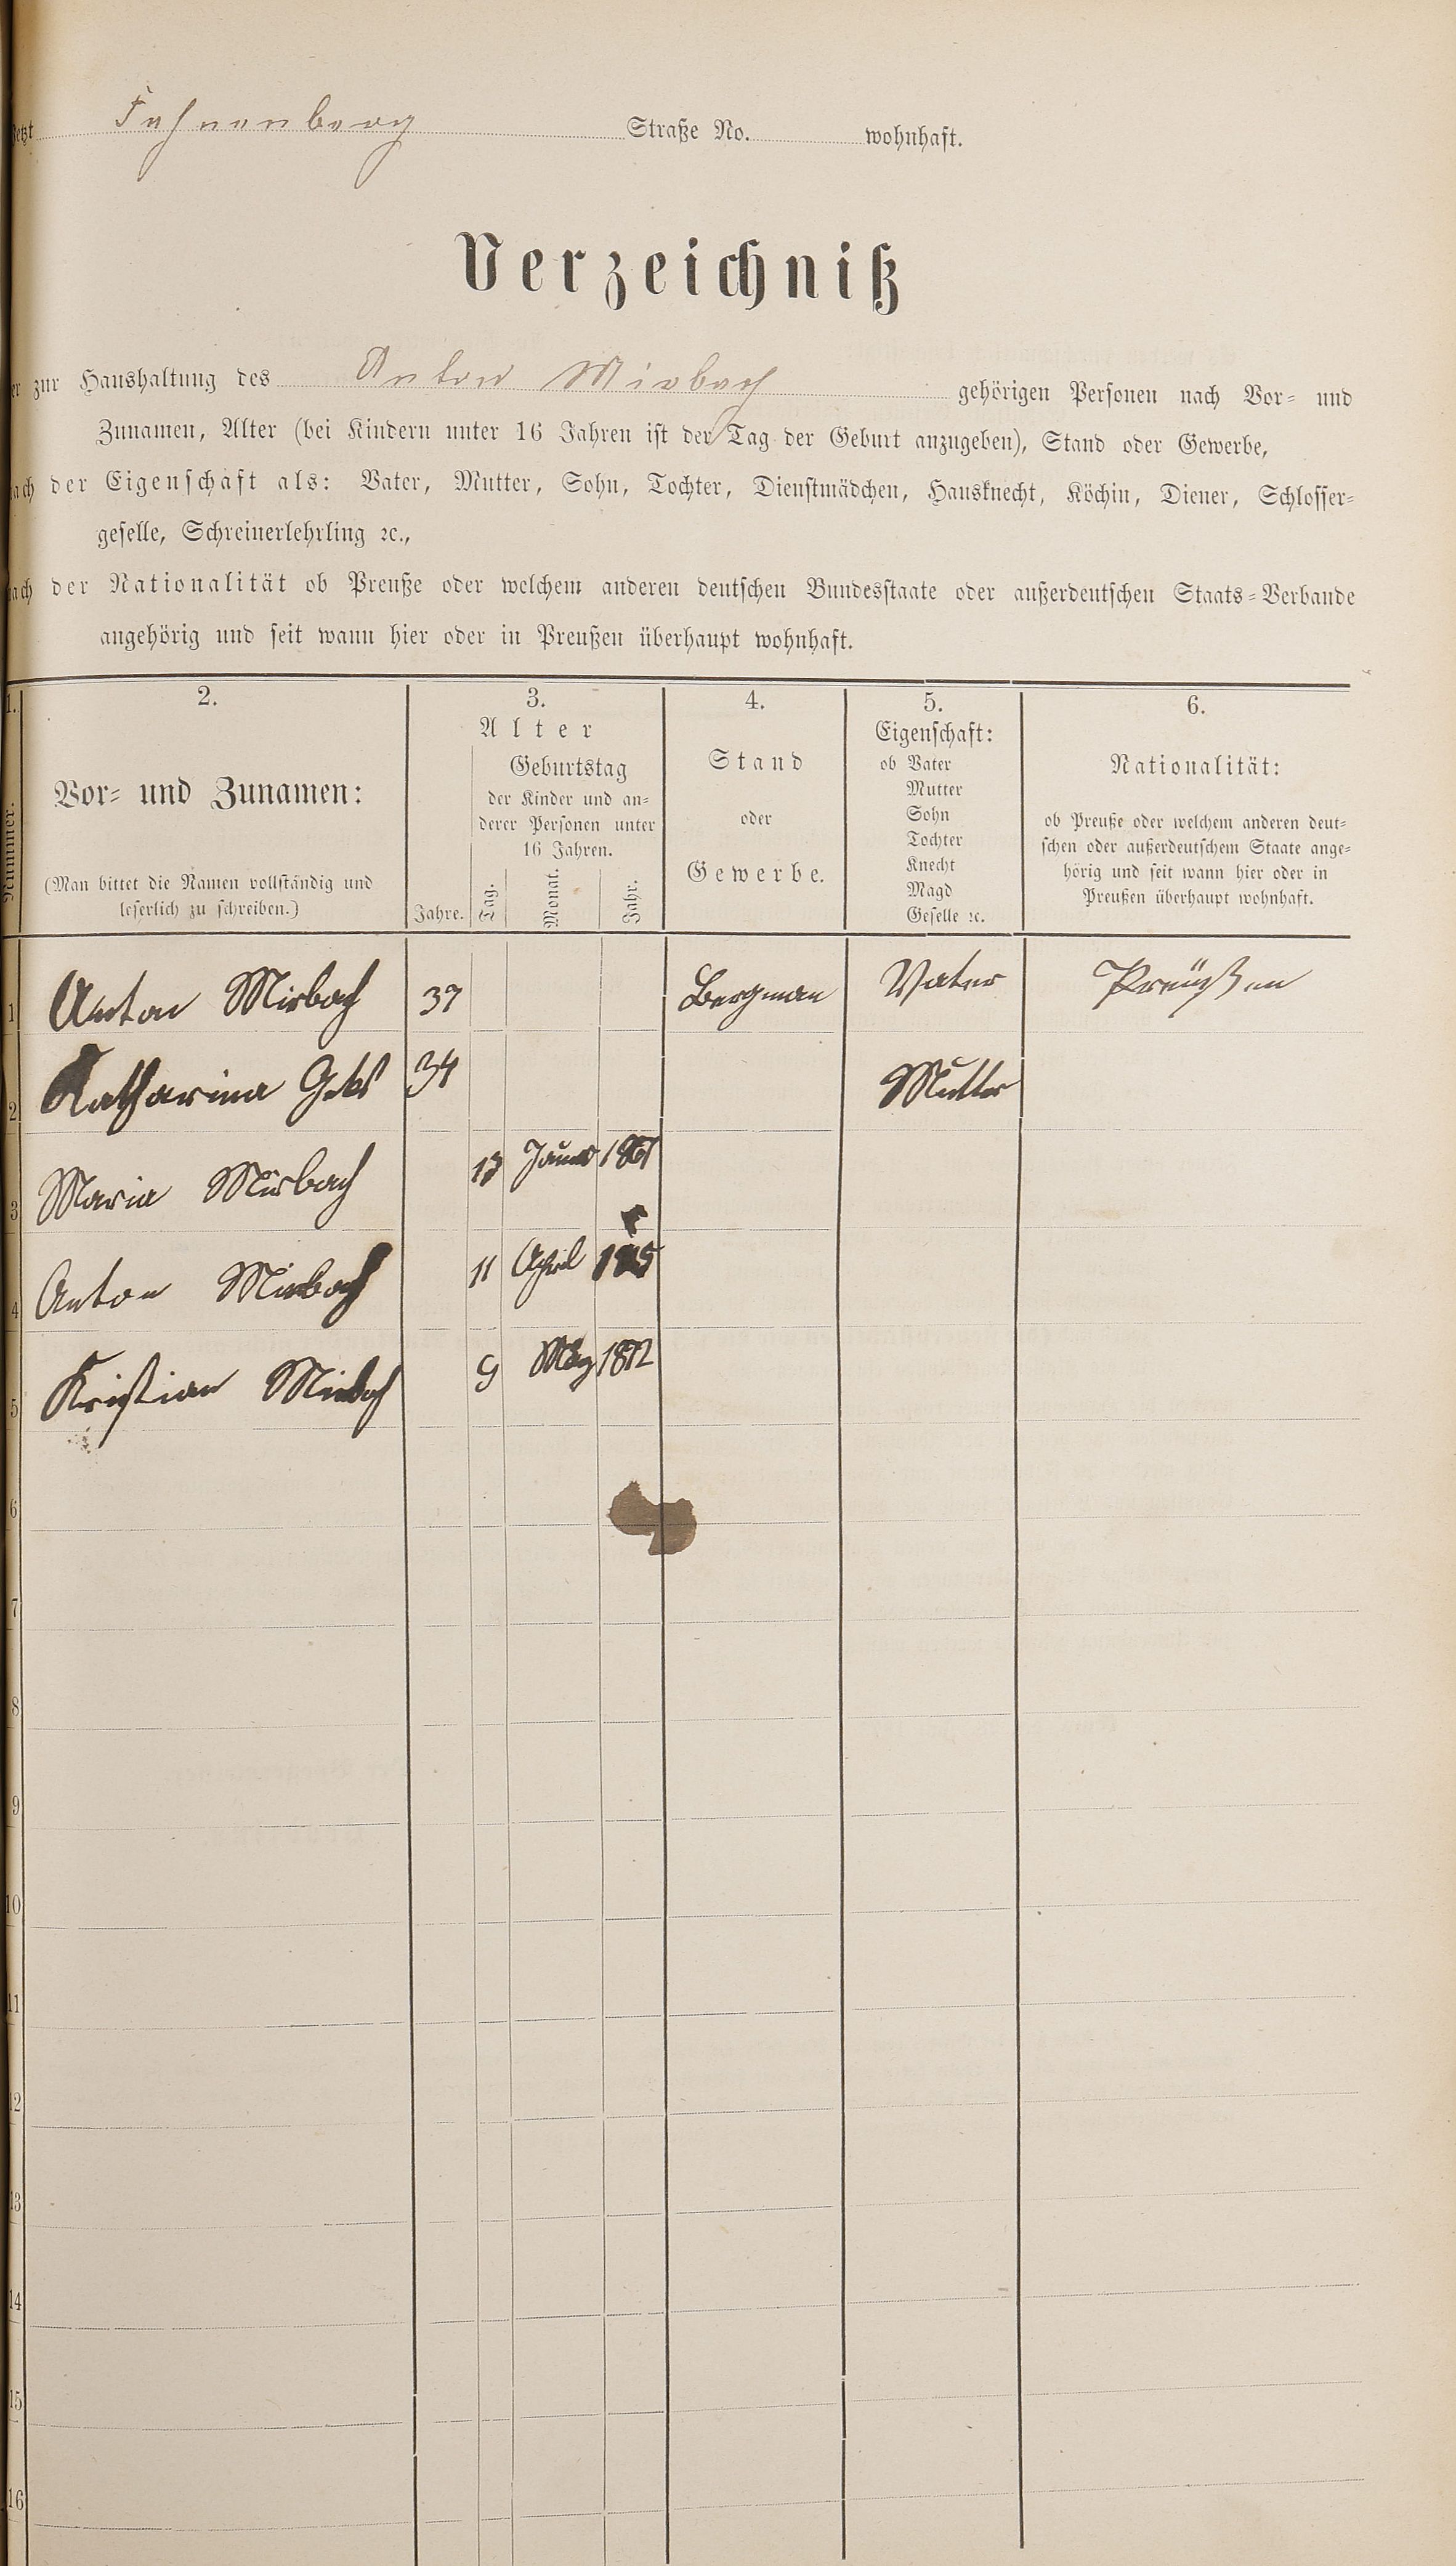 Jetzt Fahnenberg Straße No. wohnhaft.
Verzeichniß
der zur Haushaltung des Anton Mirbach gehörigen Personen nach Vor- und
Zunamen, Alter (bei Kindern unter 16 Jahren ist der Tag der Geburt anzugeben), Stand oder Gewerbe,
nach der Eigenschaft als: Vater, Mutter, Sohn, Tochter, Dienstmädchen, Hausknecht, Köchin, Diener, Schlosser-
geselle, Schreinerlehrling ꝛc.,
nach der Nationalität ob Preuße oder welchem anderen deutschen Bundesstaate oder außerdeutschen Staats-Verbande
angehörig und seit wann hier oder in Preußen überhaupt wohnhaft.
1. 2. 3. 4. 5. 6.
Nummer.
Vor- und Zunamen:
(Man bittet die Namen vollständig und
leserlich zu schreiben.)
Alter
Jahre.
Geburtstag
der Kinder und an-
derer Personen unter
16 Jahren.
Tag. Monat. Jahr.
Stand
oder
Gewerbe.
Eigenschaft:
ob Vater
Mutter
Sohn
Tochter
Knecht
Magd
Geselle ꝛc.
Nationalität:
ob Preuße oder welchem anderen deut-
schen oder außerdeutschem Staate ange-
hörig und seit wann hier oder in
Preußen überhaupt wohnhaft.
1 Anton Mirbach 37 Bergman Vater Preußen
2 Katharina 34 Mutter
3 Maria Mirbach 13
4 Anton Mirbach 11 April
5 Kristian Mirbach 9 März 1872
6
7
8
9
10
11
12
13
14
15
16